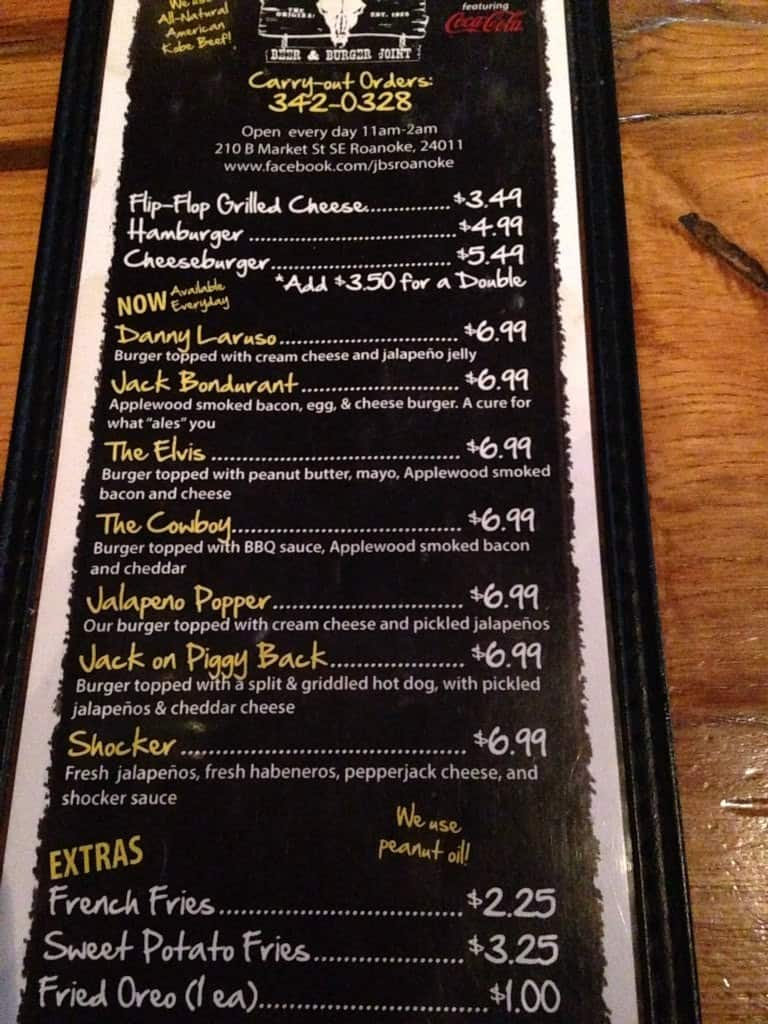 We use
All-Natural
American
Kobe Beef!
THE ORIGINAL EST. 1989
BEER & BURGER JOINT
featuring
Coca-Cola
Carry-out Orders:
342-0328
Open every day 11am-2am
210 B Market St SE Roanoke, 24011
www.facebook.com/jbsroanoke
Flip-Flop Grilled Cheese..............$3.49
Hamburger..............$4.99
Cheeseburger..............$5.49
*Add $3.50 for a Double
NOW Available Everyday
Danny Laruso..............$6.99
Burger topped with cream cheese and jalapeño jelly
Jack Bondurant..............$6.99
Applewood smoked bacon, egg, & cheese burger. A cure for
what "ales" you
The Elvis..............$6.99
Burger topped with peanut butter, mayo, Applewood smoked
bacon and cheese
The Cowboy..............$6.99
Burger topped with BBQ sauce, Applewood smoked bacon
and cheddar
Jalapeno Popper..............$6.99
Our burger topped with cream cheese and pickled jalapeños
Jack on Piggy Back..............$6.99
Burger topped with a split & griddled hot dog, with pickled
jalapeños & cheddar cheese
Shocker..............$6.99
Fresh jalapeños, fresh habeneros, pepperjack cheese, and
shocker sauce
We use
peanut oil!
EXTRAS
French Fries..............$2.25
Sweet Potato Fries..............$3.25
Fried Oreo (1 ea)..............$1.00